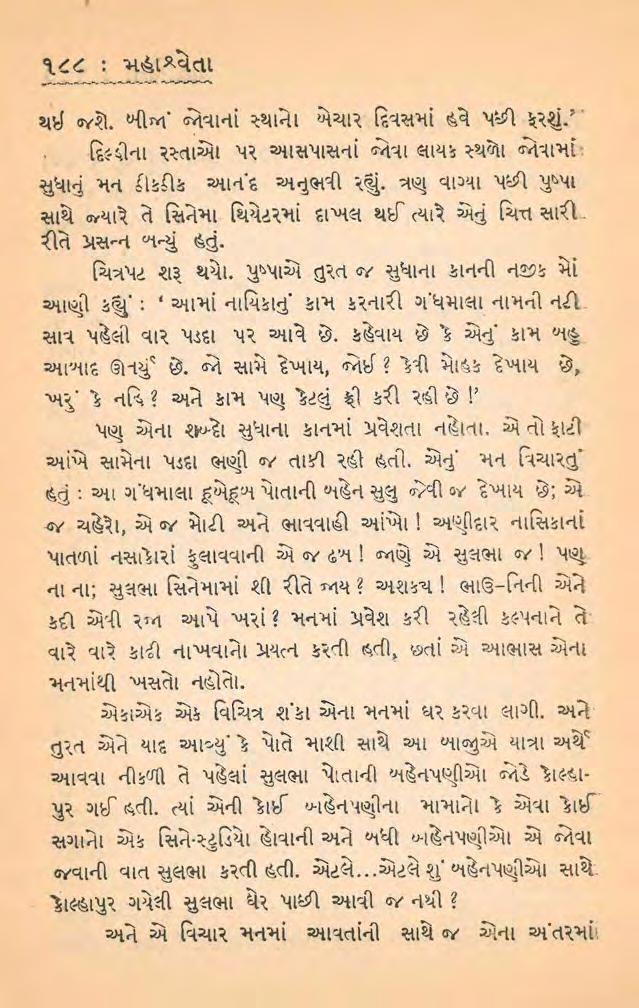 ૧૮૮ : મહાશ્વેતા
થઈ જશે. બીજાં જોવાનાં સ્થાનો બેચાર દિવસમાં હવે પછી ફરશું.’
દિલ્હીના રસ્તાઓ પર આસપાસનાં જોવા લાયક સ્થળો જોવામાં
સુધાનું મન ઠીકઠીક આનંદ અનુભવી રહ્યું. ત્રણ વાગ્યા પછી પુષ્પા
સાથે જ્યારે તે સિનેમા થિયેટરમાં દાખલ થઈ ત્યારે એનું ચિત્ત સારી
રીતે પ્રસન્ન બન્યું હતું.
ચિત્રપટ શરૂ થયો. પુષ્પાએ તુરત જ સુધાના કાનની નજીક મોં
આણી કહ્યું : ‘ આમાં નાયિકાનું કામ કરનારી ગંધમાલા નામની નટી
સાવ પહેલી વાર પડદા પર આવે છે. કહેવાય છે કે એનું કામ બહુ
આબાદ ઊતર્યું છે. જો સામે દેખાય, જોઈ ? કેવી મોહક દેખાય છે,
ખરું કે નહિ ? અને કામ પણ કેટલું ફ્રી કરી રહી છે !’
પણ એના શબ્દો સુધાના કાનમાં પ્રવેશતા નહોતા. એ તો ફાટી
આંખે સામેના પડદા ભણી જ તાકી રહી હતી. એનું મન વિચારતું
હતું : આ ગંધમાલા હૂબેહૂબ પોતાની બહેન સુલુ જેવી જ દેખાય છે; એ
જ ચહેરો, એ જ મોટી અને ભાવવાહી આંખો ! અણીદાર નાસિકાનાં
પાતળાં નસકોરાં ફુલાવવાની એ જ ઢબ ! જાણે એ સુલભા જ ! પણ
ના ના; સુલભા સિનેમામાં શી રીતે જાય ? અશક્ય ! ભાઉ-નિની એને
કદી એવી રજા આપે ખરાં ? મનમાં પ્રવેશ કરી રહેલી કલ્પનાને તે
વારે વારે કાઢી નાખવાનો પ્રયત્ન કરતી હતી, છતાં એ આભાસ એના
મનમાંથી ખસતો નહોતો.
એકાએક એક વિચિત્ર શંકા એના મનમાં ઘર કરવા લાગી. અને
તુરત એને યાદ આવ્યું કે પોતે માશી સાથે આ બાજુએ યાત્રા અર્થે
આવવા નીકળી તે પહેલાં સુલભા પોતાની બહેનપણીઓ જોડે કોલ્હા-
પુર ગઈ હતી. ત્યાં એની કોઈ બહેનપણીના મામાનો કે એવા કોઈ
સગાનો એક સિને-સ્ટુડિયો હોવાની અને બધી બહેનપણીઓ એ જોવા
જવાની વાત સુલભા કરતી હતી. એટલે...એટલે શું બહેનપણીઓ સાથે
કોલ્હાપુર ગયેલી સુલભા ઘેર પાછી આવી જ નથી ?
અને એ વિચાર મનમાં આવતાંની સાથે જ એના અંતરમાં